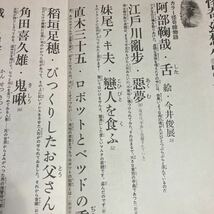 阿部鞠哉
絵・今井俊展
江戸川亂歩・惡夢
妹尾アキ夫・戀人を食ふ
直木三十五・ロボットとベッドの
稲垣足穂・びっくりしたお父さん
角田喜久雄・鬼啾